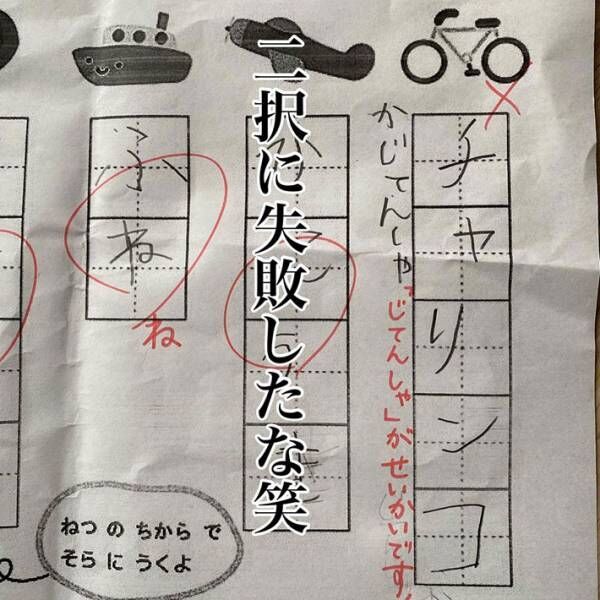 チャリンコ
かじてんしゃ
「じてんしゃ」がせいかいです。
二択に失敗したな笑
ふね
ね
ねつ の ちから で
そら に うくよ